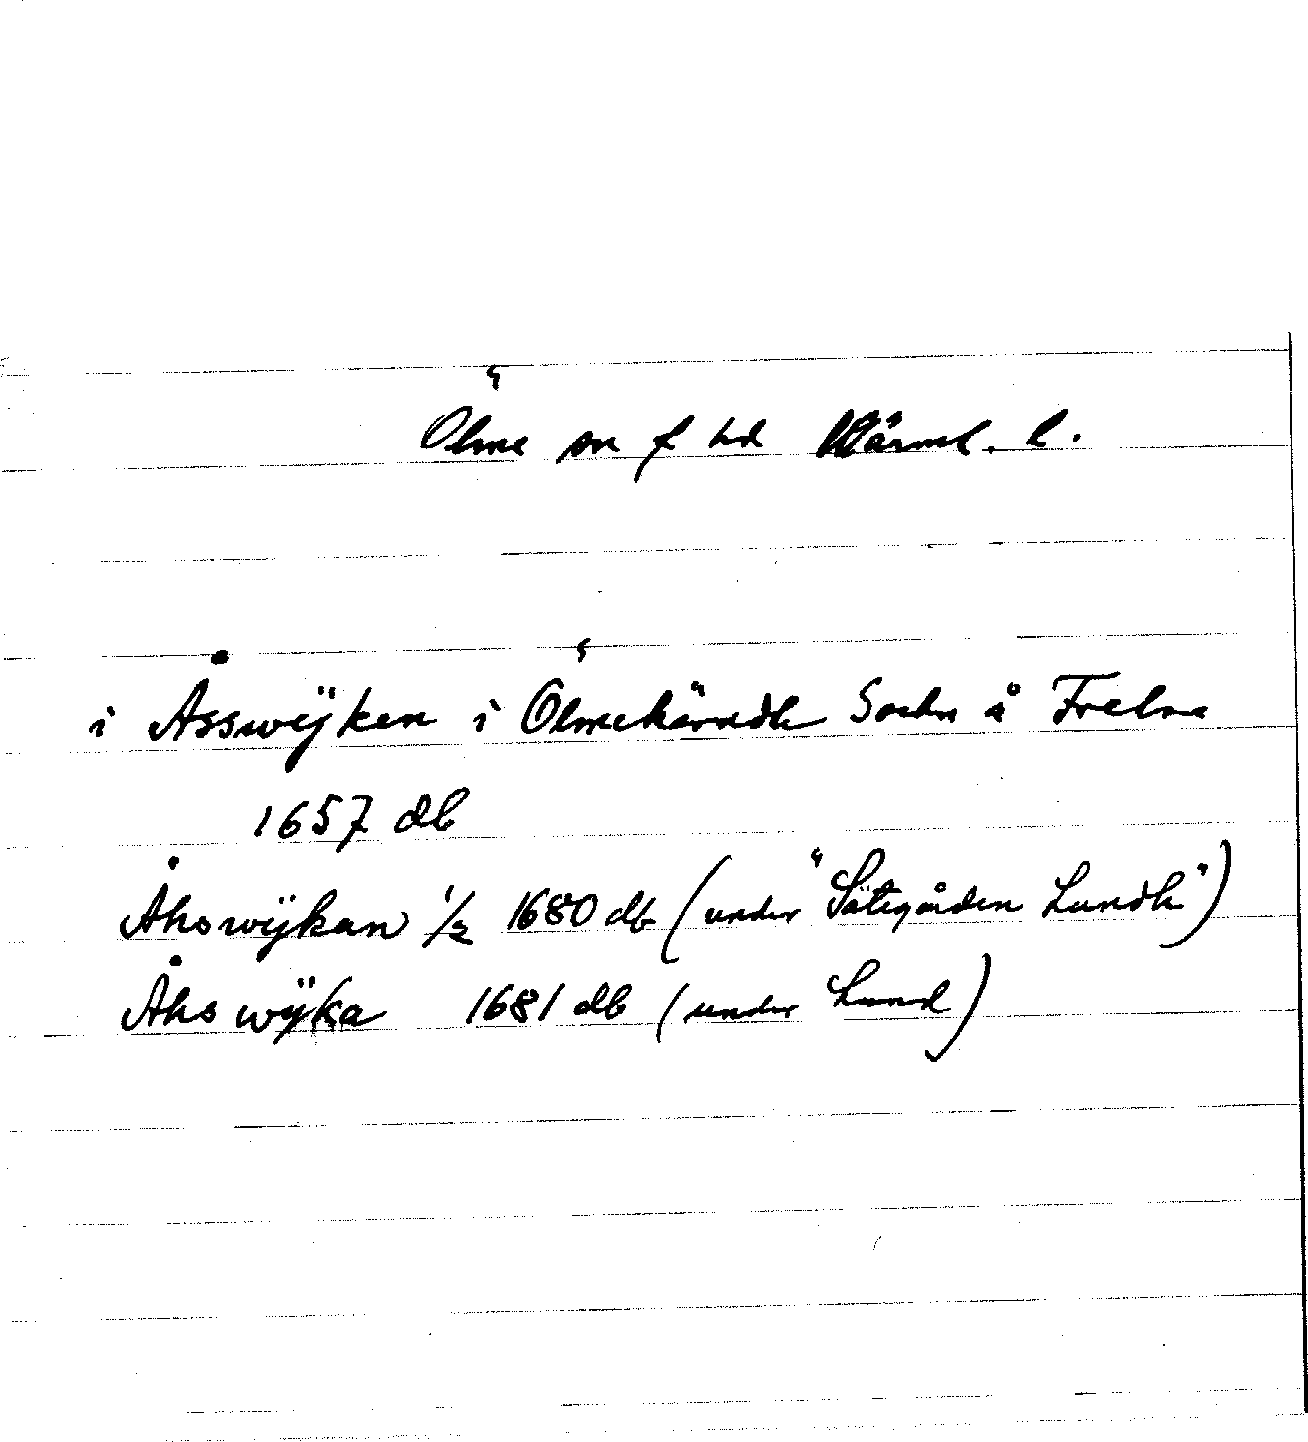 Ölme sn f hd Värml. l.
i Åsswÿken i Ölmehäradh Sochn å Frelse
1657 db
Åhswÿkan 1/2 1680 db (under "Sätegården Lundh")
Åhs wÿka 1681 db (under Lund)